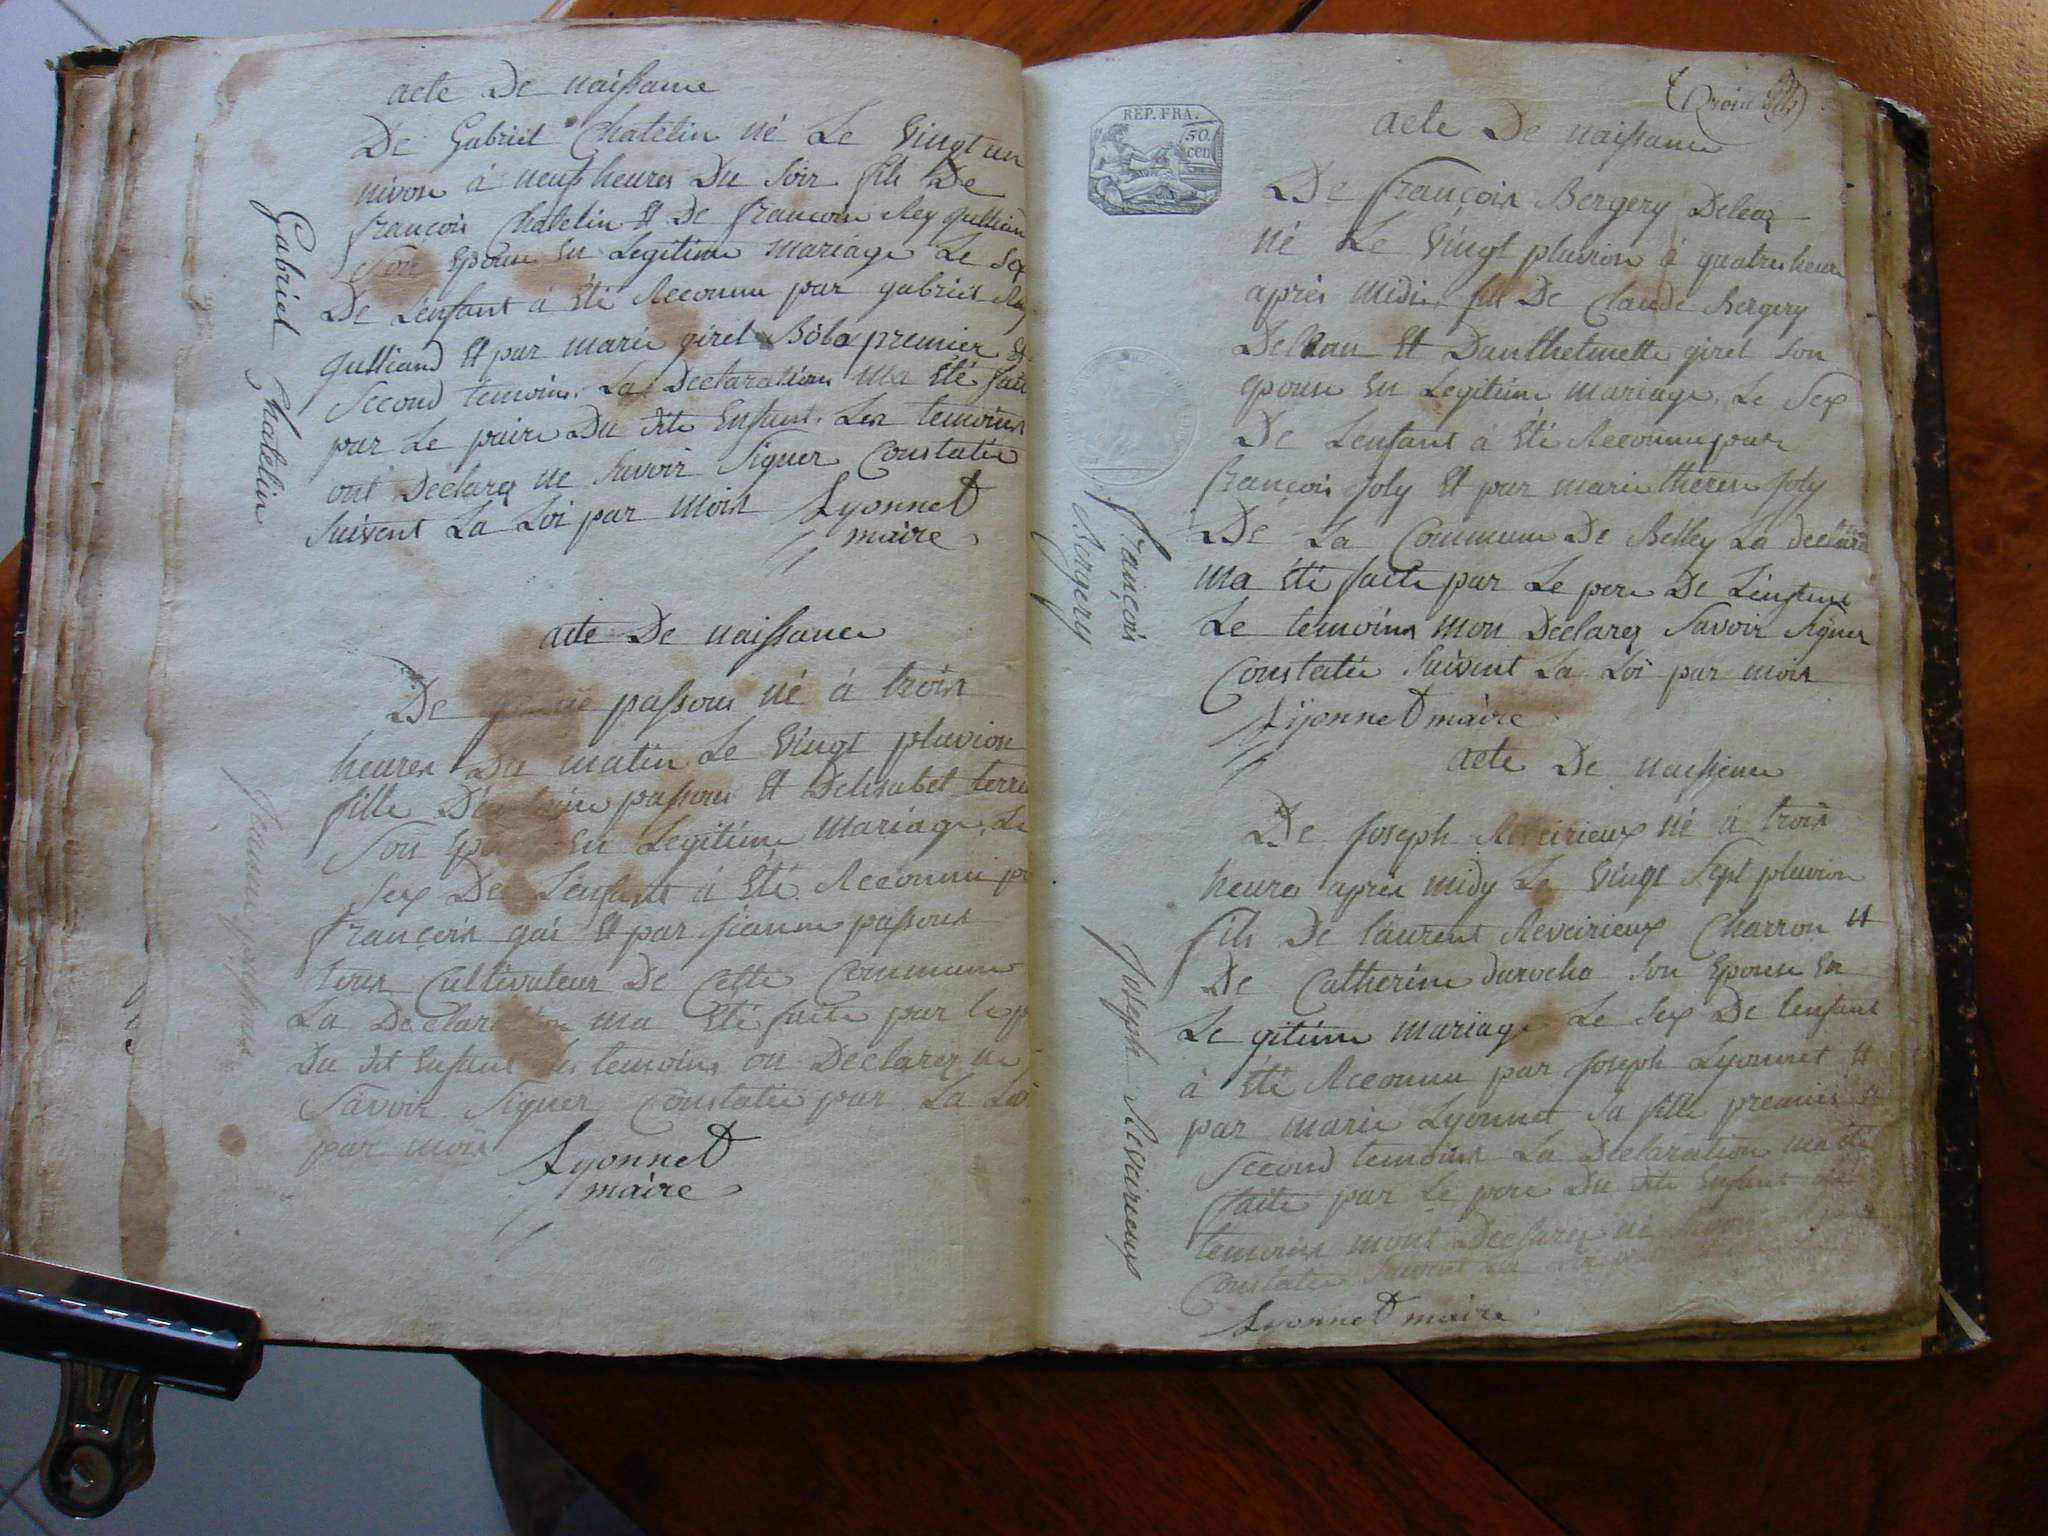 acte De naissance
De Gabriel Chatelin né Le Vingt un
nivose à neuf heures Du soir fils De
françois Chatelin Et De francoise Rey gulliand
son Epouse En Legitime mariage Le Sex
De L'enfant à Eté Reconnu par gabriel Rey
gulliand Et par marie giret Bôla premier Et
second temoins. La Declaration ma Eté fait
par Le paire Du dite Enfant. Les temoins
ont Déclarez ne savoir signer Constatée
suivent La Loi par mois Lyonnet
maire
Gabriel Chatelin
acte De naissance
De passous né à trois
heures Du matin Le Vingt pluviose
fille passous Et Delisabet
son En Legitime Mariage. Le
sex De L'enfant à Eté Reconnu
françois gai Et par jeanne passous
tous Cultivateur De Cette Commune
La Declaration ma Eté faite par le
Du dit Enfant temoins on Declarez ne
savoir signer Constatée par La Loi
par mois
Lyonnet
maire
passous
REP. FRA.
50
cen
acte De naissance
De françois Bergery
né Le Vingt pluviose à quatres heure
après midi fils De Claude Bergery
Et Danthelmette giret son
Epouse En Legitime mariage. Le Sex
De L'enfant à Eté Reconnu par
françois Joly Et par marie therese Joly
De La Commune De Belley La
ma Eté faite par Le pere De L'enfant
Le temoins mon Declarez savoir signer
Constatée suivent La Loi par mois
Lyonnet maire
françois
Bergery
acte De naissance
De Joseph Reveirieux né à trois
heure après midy Le Vingt Sept pluviose
fils De laurent Reveirieux Charron Et
De Catherine durocha son Epouse En
Le gitime mariage Le Sex De lenfant
à Eté Reconnu par Joseph Lyonnet Et
par marie Lyonnet sa fille premier Et
second temoins La Declaration ma Eté
faite par Le pere Du dite Enfant
temoins mont Declarez ne savoir
Constatée suivent La Loi
Lyonnet maire
Joseph Reveirieux